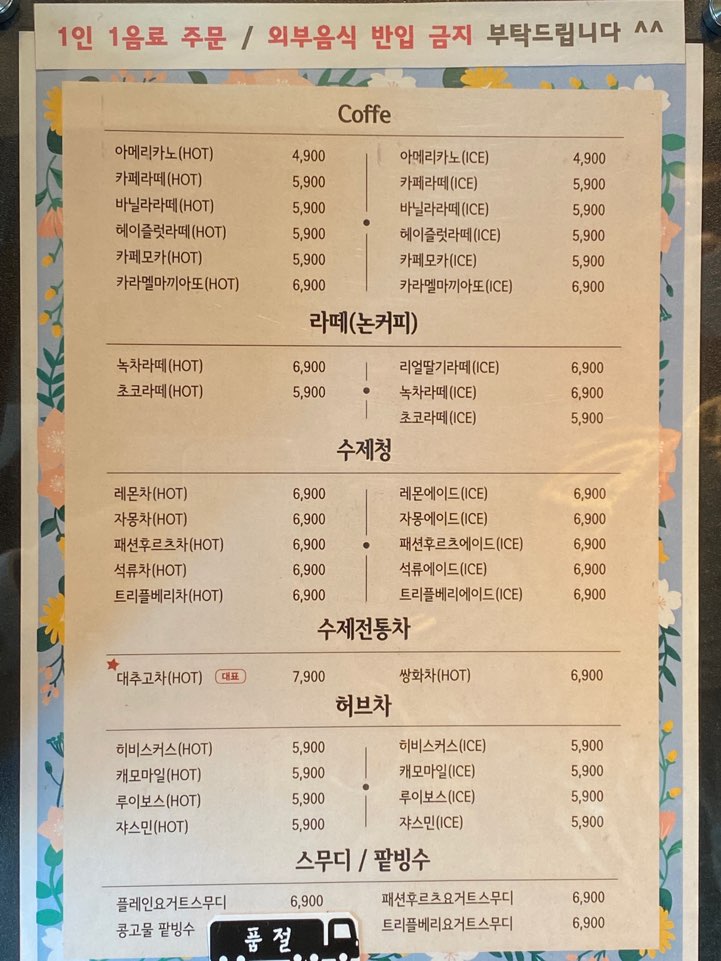 1인 1음료 주문 / 외부음식 반입 금지 부탁드립니다 ^^
Coffe
아메리카노(HOT) 4,900 아메리카노(ICE) 4,900
카페라떼(HOT) 5,900 카페라떼(ICE) 5,900
바닐라라떼(HOT) 5,900 바닐라라떼(ICE) 5,900
헤이즐럿라떼(HOT) 5,900 헤이즐럿라떼(ICE) 5,900
카페모카(HOT) 5,900 카페모카(ICE) 5,900
카라멜마끼아또(HOT) 6,900 카라멜마끼아또(ICE) 6,900
라떼(논커피)
녹차라떼(HOT) 6,900 리얼딸기라떼(ICE) 6,900
초코라떼(HOT) 5,900 녹차라떼(ICE) 6,900
초코라떼(ICE) 5,900
수제청
레몬차(HOT) 6,900 레몬에이드(ICE) 6,900
자몽차(HOT) 6,900 자몽에이드(ICE) 6,900
패션후르츠차(HOT) 6,900 패션후르츠에이드(ICE) 6,900
석류차(HOT) 6,900 석류에이드(ICE) 6,900
트리플베리차(HOT) 6,900 트리플베리에이드(ICE) 6,900
수제전통차
대추고차(HOT) 대표 7,900 쌍화차(HOT) 6,900
허브차
히비스커스(HOT) 5,900 히비스커스(ICE) 5,900
캐모마일(HOT) 5,900 캐모마일(ICE) 5,900
루이보스(HOT) 5,900 루이보스(ICE) 5,900
쟈스민(HOT) 5,900 쟈스민(ICE) 5,900
스무디 / 팥빙수
플레인요거트스무디 6,900 패션후르츠요거트스무디 6,900
콩고물 팥빙수 품절 트리플베리요거트스무디 6,900